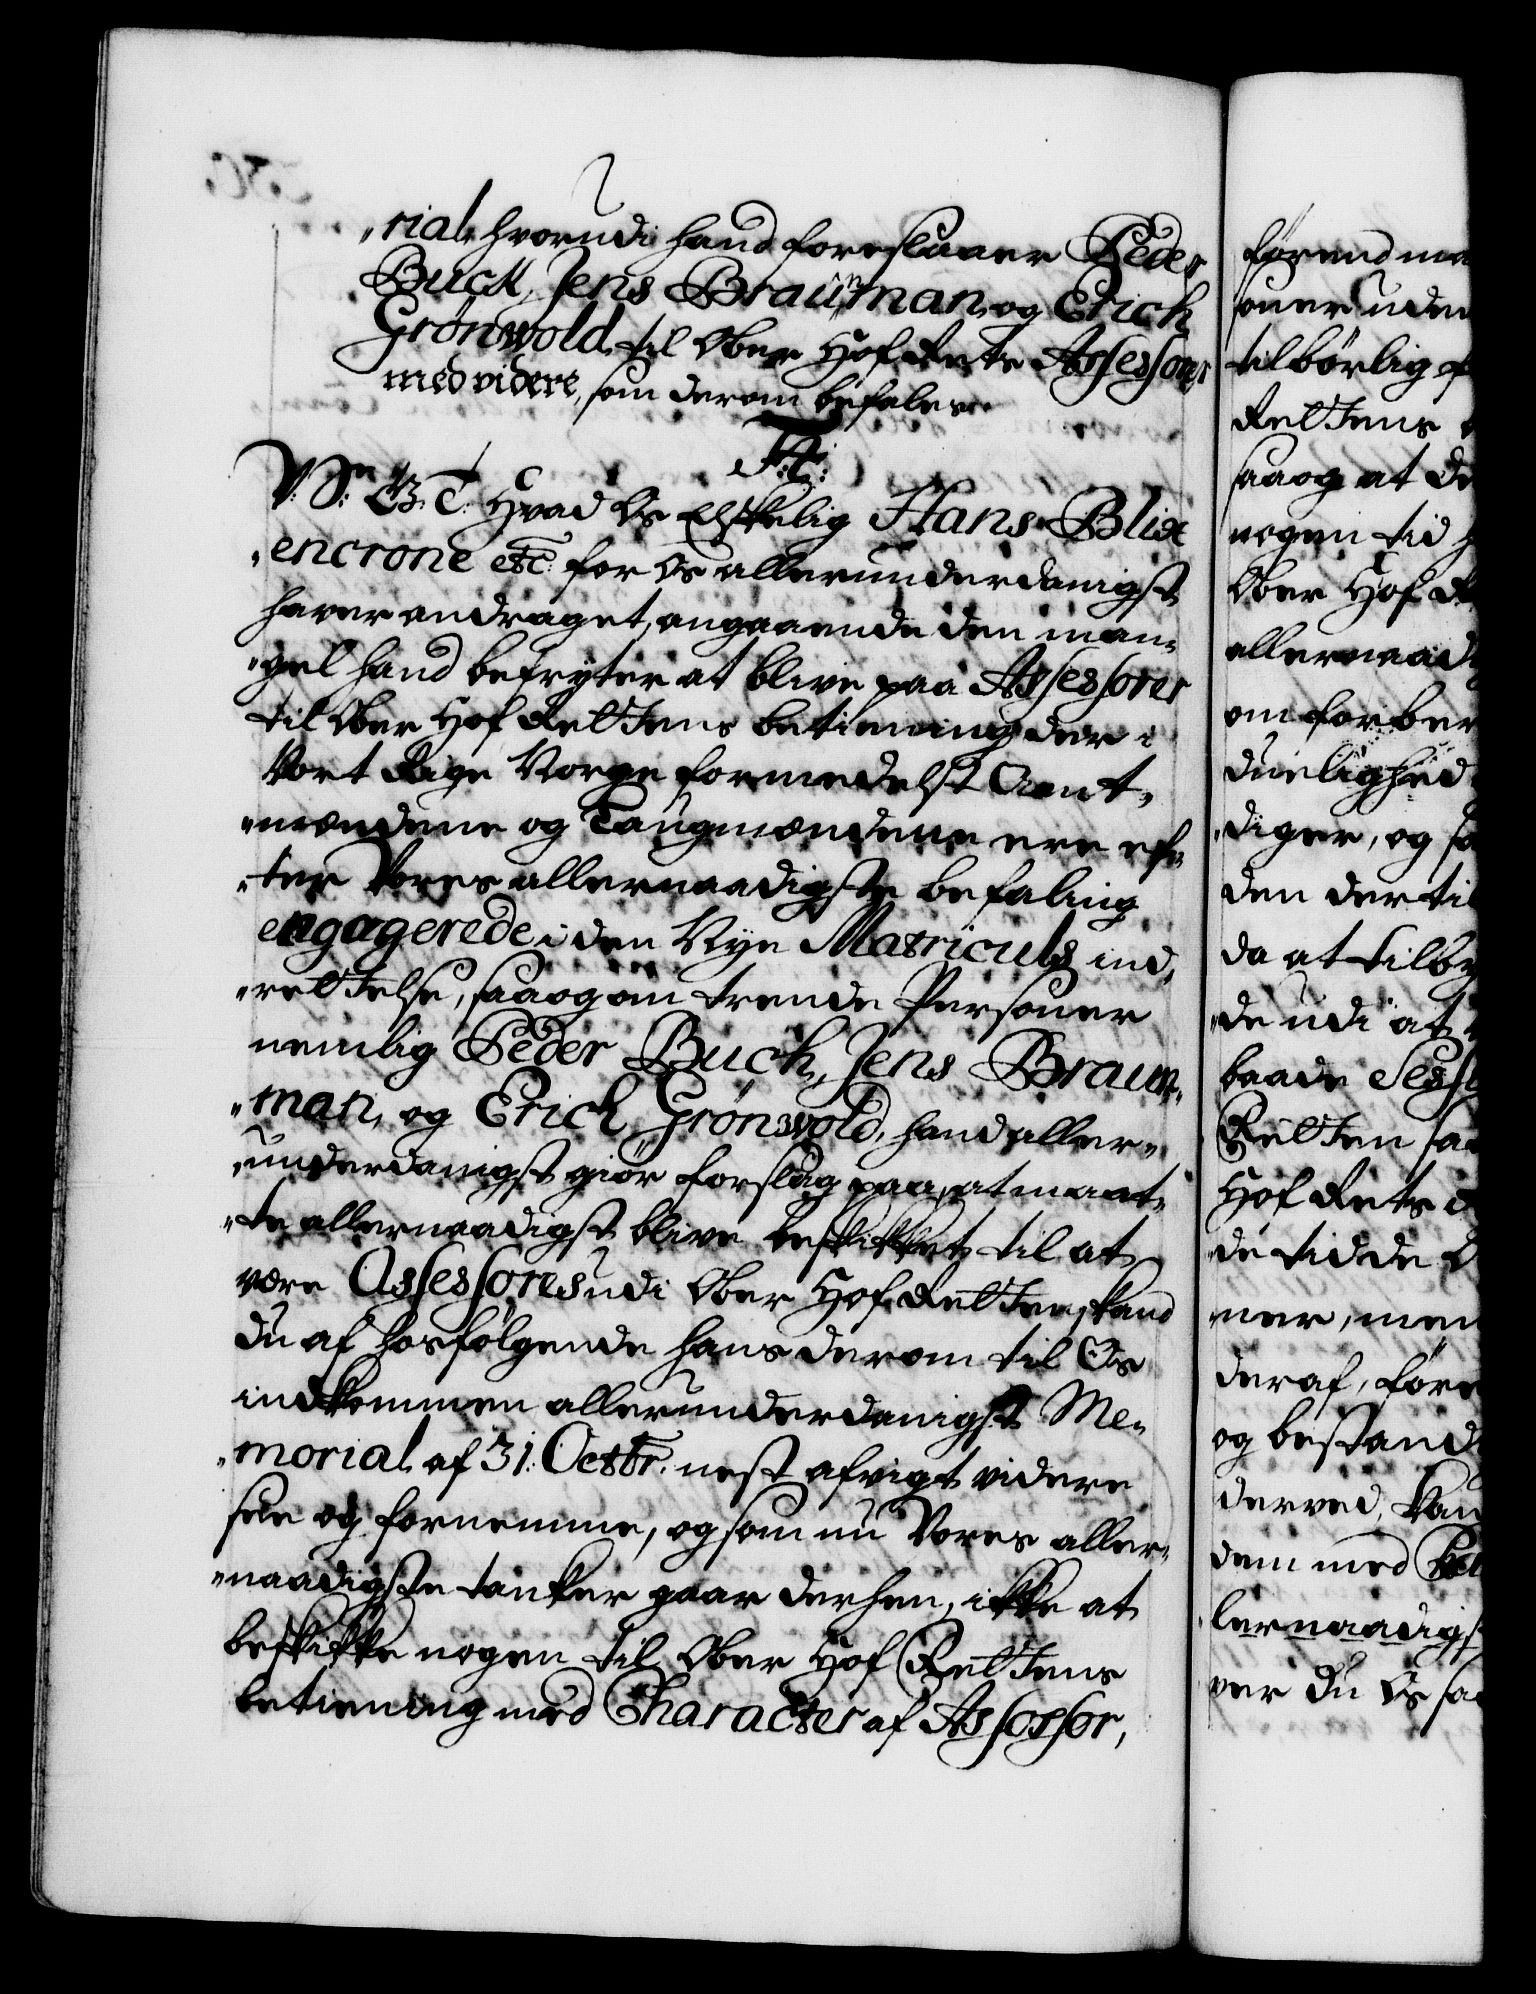 „rial, hvorudi hand foreslaaer Peder
Buck, Jens Brauman, og Erich
Grønwold, til Ober Hof Rets Assessores
med videre, som derom befales.
F. 4.
V. S. G. T. Hvad Os Elskelig Hans Blix
„encrone etc. for Os allerunderdanigst
haver andraget, angaaende den man„
„gel hand befryter at blive paa Assessorer
til Ober Hof Rettens betiening der i
Vort Rige Norge formedelst Amt„
„mændene og Laugmændene ere ef„
„ter Vores allernaadigste befaling
engagerede i den Nye Matriculs ind„
„rettelse, saa og om trende Personer
nemlig Peder Buch, Jens Braun„
„man, og Erich Grønwold, hand aller„
„underdanigst giør forslag paa, at maat„
„te allernaadigst blive beskikket til at
være Assessores udi Ober Hof Retten, kand
du af hosfølgende hans derom til Os
indkommen allerunderdanigst Me„
„morial af 31. Octbr. nest afvigt videre
see og fornemme, og som nu Vores aller„
„naadigste tanker gaar derhen, ikke at
beskikke nogen til Ober Hof Rettens
betiening med Character af Assessor,
førend ma
soner uden
tilbørlig
Rettens
saa og at de
nogen tid
Ober Hof R
allernaad
om forber
duelighed
„diger, og sa
den der til
da at tilby
„de udi at
baade Sess
Retten sa
Hof Rets
„de tid de
ner, men
deraf, føre
og bestand
derved, kan
dem med
lernaadigs
ver du Os sa